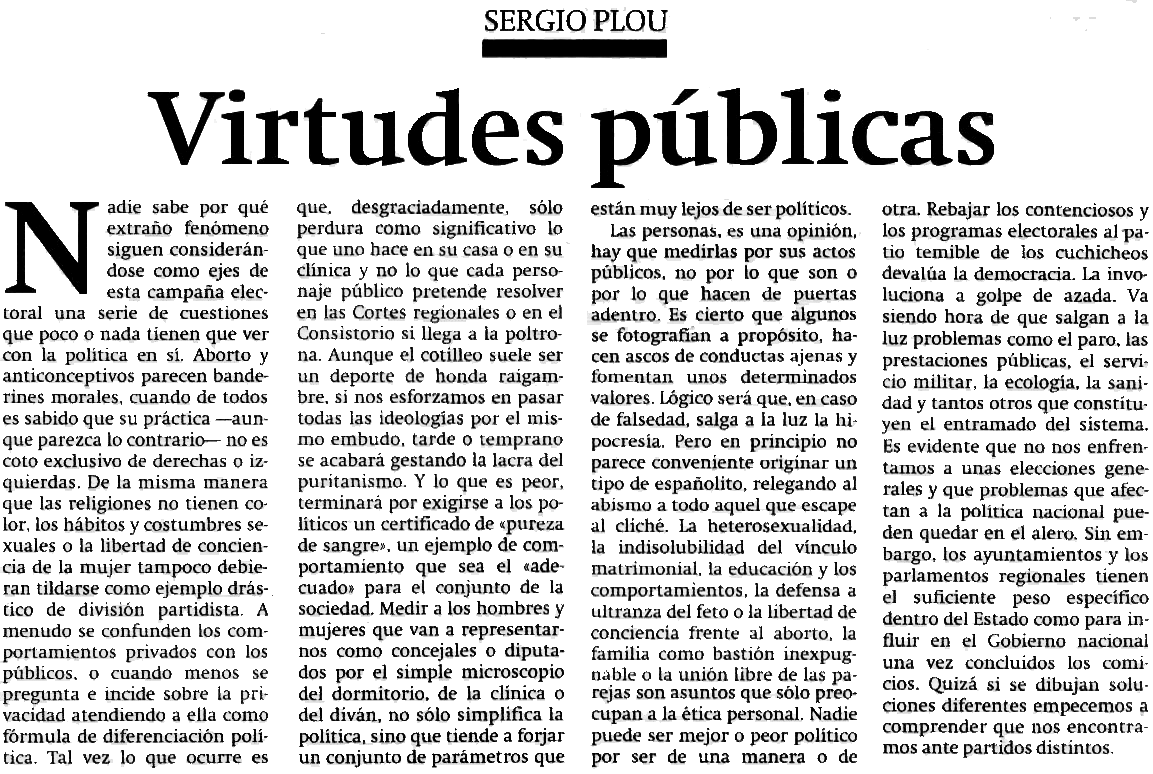 SERGIO PLOU
Virtudes públicas
Nadie sabe por qué
extraño fenómeno
siguen considerán-
dose como ejes de
esta campaña elec-
toral una serie de cuestiones
que poco o nada tienen que ver
con la política en sí. Aborto y
anticonceptivos parecen bande-
rines morales, cuando de todos
es sabido que su práctica —aun-
que parezca lo contrario— no es
coto exclusivo de derechas o iz-
quierdas. De la misma manera
que las religiones no tienen co-
lor, los hábitos y costumbres se-
xuales o la libertad de concien-
cia de la mujer tampoco debie-
ran tildarse como ejemplo drás-
tico de división partidista. A
menudo se confunden los com-
portamientos privados con los
públicos, o cuando menos se
pregunta e incide sobre la pri-
vacidad atendiendo a ella como
fórmula de diferenciación polí-
tica. Tal vez lo que ocurre es
que, desgraciadamente, sólo
perdura como significativo lo
que uno hace en su casa o en su
clínica y no lo que cada perso-
naje público pretende resolver
en las Cortes regionales o en el
Consistorio si llega a la poltro-
na. Aunque el cotilleo suele ser
un deporte de honda raigam-
bre, si nos esforzamos en pasar
todas las ideologías por el mis-
mo embudo, tarde o temprano
se acabará gestando la lacra del
puritanismo. Y lo que es peor,
terminará por exigirse a los po-
líticos un certificado de «pureza
de sangre», un ejemplo de com-
portamiento que sea el «ade-
cuado» para el conjunto de la
sociedad. Medir a los hombres y
mujeres que van a representar-
nos como concejales o diputa-
dos por el simple microscopio
del dormitorio, de la clínica o
del diván, no sólo simplifica la
política, sino que tiende a forjar
un conjunto de parámetros que
están muy lejos de ser políticos.
Las personas, es una opinión,
hay que medirlas por sus actos
públicos, no por lo que son o
por lo que hacen de puertas
adentro. Es cierto que algunos
se fotografían a propósito, ha-
cen ascos de conductas ajenas y
fomentan unos determinados
valores. Lógico será que, en caso
de falsedad, salga a la luz la hi-
pocresía. Pero en principio no
parece conveniente originar un
tipo de españolito, relegando al
abismo a todo aquel que escape
al cliché. La heterosexualidad,
la indisolubilidad del vínculo
matrimonial, la educación y los
comportamientos, la defensa a
ultranza del feto o la libertad de
conciencia frente al aborto, la
familia como bastión inexpug-
nable o la unión libre de las pa-
rejas son asuntos que sólo preo-
cupan a la ética personal. Nadie
puede ser mejor o peor político
por ser de una manera o de
otra. Rebajar los contenciosos y
los programas electorales al pa-
tio temible de los cuchicheos
devalúa la democracia. La invo-
luciona a golpe de azada. Va
siendo hora de que salgan a la
luz problemas como el paro, las
prestaciones públicas, el servi-
cio militar, la ecología, la sani-
dad y tantos otros que constitu-
yen el entramado del sistema.
Es evidente que no nos enfren-
tamos a unas elecciones gene-
rales y que problemas que afec-
tan a la política nacional pue-
den quedar en el alero. Sin em-
bargo, los ayuntamientos y los
parlamentos regionales tienen
el suficiente peso específico
dentro del Estado como para in-
fluir en el Gobierno nacional
una vez concluidos los comi-
cios. Quizá si se dibujan solu-
ciones diferentes empecemos a
comprender que nos encontra-
mos ante partidos distintos.